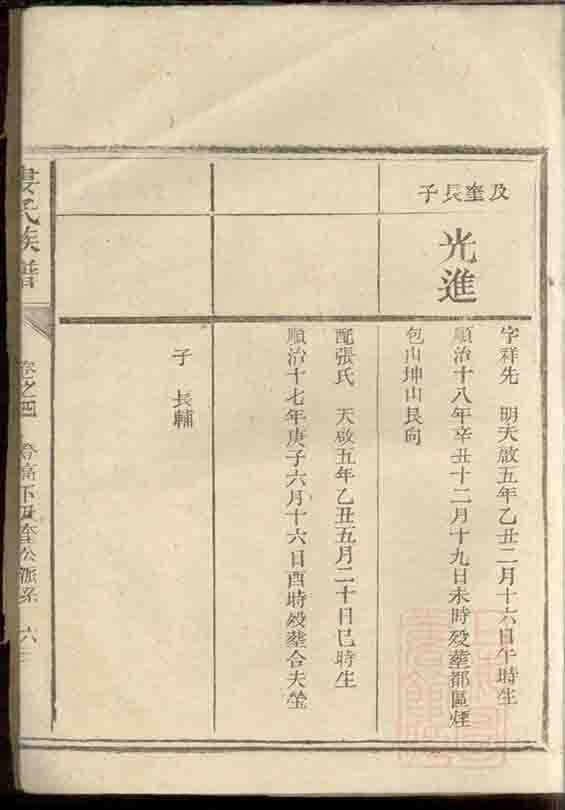 及奎長子
光進
字祥先 明天啟五年乙丑二月十六日午時生
順治十八年辛丑十二月十九日未時歿塟都區煙
包山坤山艮向
配張氏 天啟五年乙丑五月二十日巳時生
順治十七年庚子六月十六日酉時歿塟合夫塋
子 長輔
婁氏族譜 卷之四 下及奎公派系 六